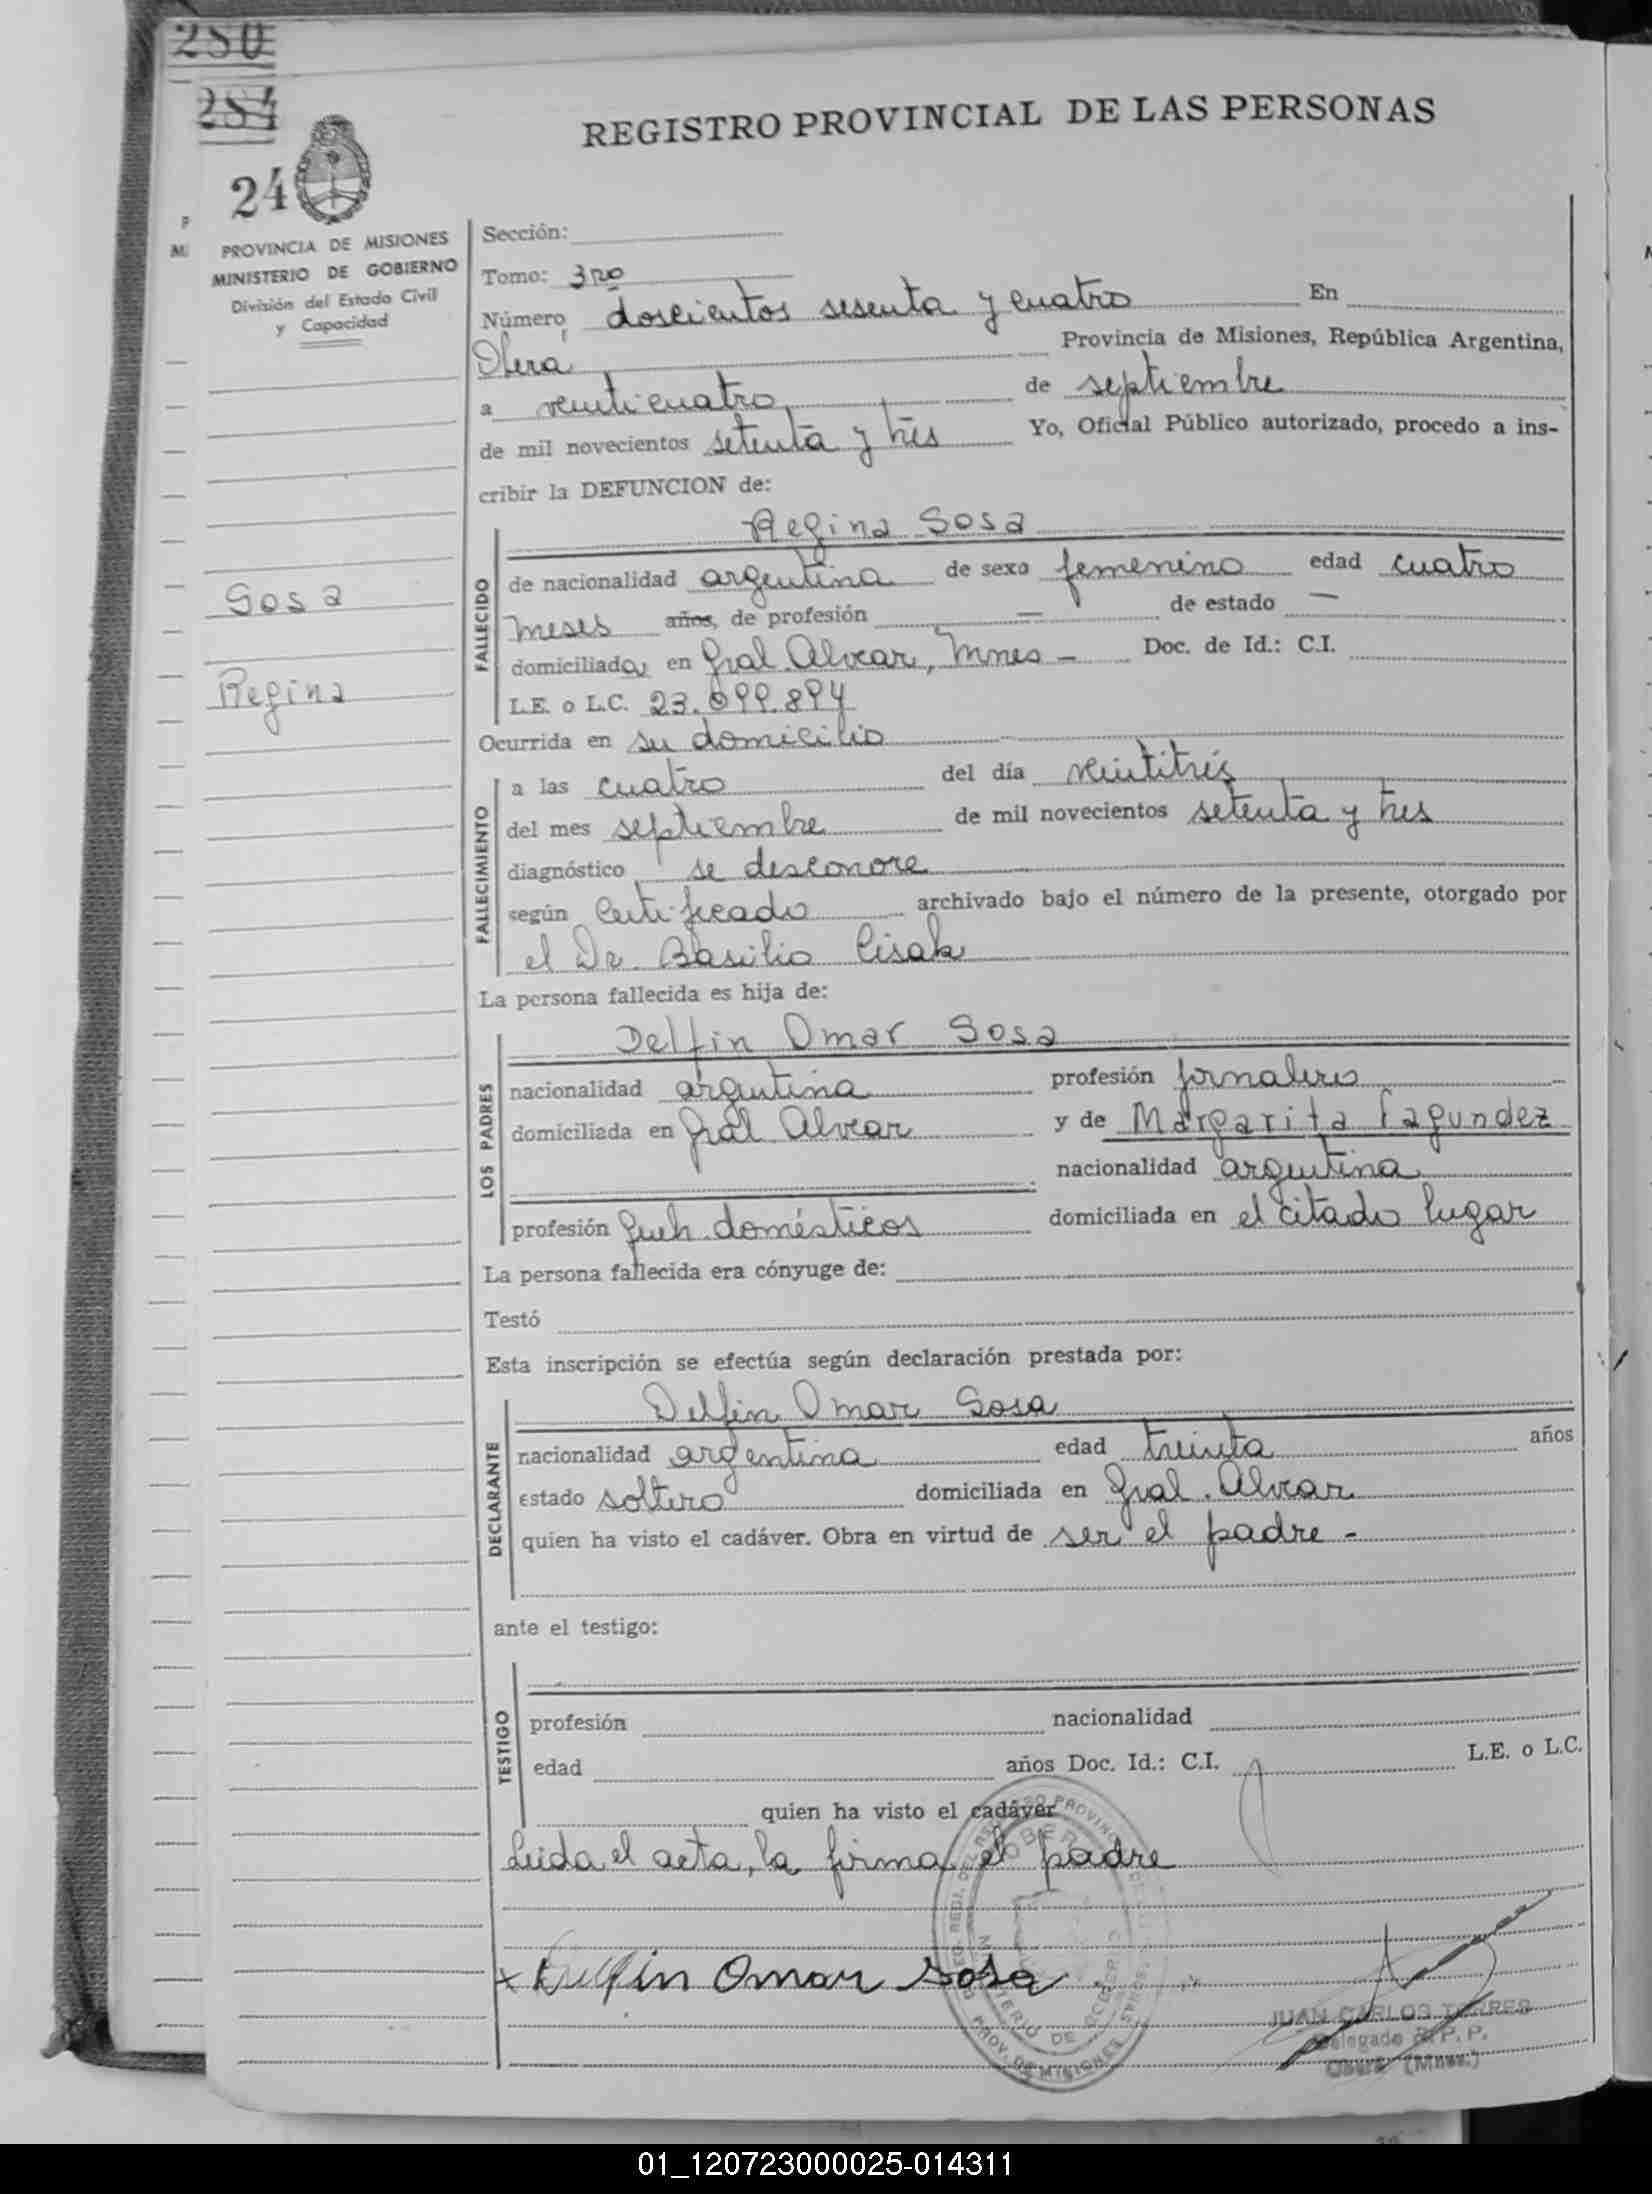 280
284
24
REGISTRO PROVINCIAL DE LAS PERSONAS
PROVINCIA DE MISIONES
MINISTERIO DE GOBIERNO
División del Estado Civil
y Capacidad
Sosa
Regina
Sección:
Tomo: 3ro
Número doscientos sesenta y cuatro En
Oberá Provincia de Misiones, República Argentina,
a veinticuatro de septiembre
de mil novecientos setenta y tres Yo, Oficial Público autorizado, procedo a ins-
cribir la DEFUNCION de:
FALLECIDO
Regina Sosa
de nacionalidad argentina de sexo femenino edad cuatro
meses años, de profesión — de estado —
domiciliada en Gral. Alvear, Mnes — Doc. de Id.: C.I.
L.E. o L.C. 23.099.894
Ocurrida en su domicilio
FALLECIMIENTO
a las cuatro del día veintitrés
del mes septiembre de mil novecientos setenta y tres
diagnóstico se desconoce
según Certificado archivado bajo el número de la presente, otorgado por
el Dr. Basilio Cisak
La persona fallecida es hija de:
LOS PADRES
Delfin Omar Sosa
nacionalidad argentina profesión jornalero
domiciliada en Gral Alvear y de Margarita Fagundez
nacionalidad argentina
profesión queh. domésticos domiciliada en el citado lugar
La persona fallecida era cónyuge de:
Testó
Esta inscripción se efectúa según declaración prestada por:
DECLARANTE
Delfin Omar Sosa
nacionalidad argentina edad treinta años
estado soltero domiciliada en Gral. Alvear
quien ha visto el cadáver. Obra en virtud de ser el padre -
ante el testigo:
TESTIGO
profesión nacionalidad
edad años Doc. Id.: C.I. L.E. o L.C.
quien ha visto el cadáver
Leida el acta, la firma el padre
x Delfin Omar Sosa
MINISTERIO DE GOBIERNO
PROV. DE MISIONES
JUAN CARLOS TORRES
Delegado R. P. P.
Oberá (Mnes.)
01_120723000025-014311